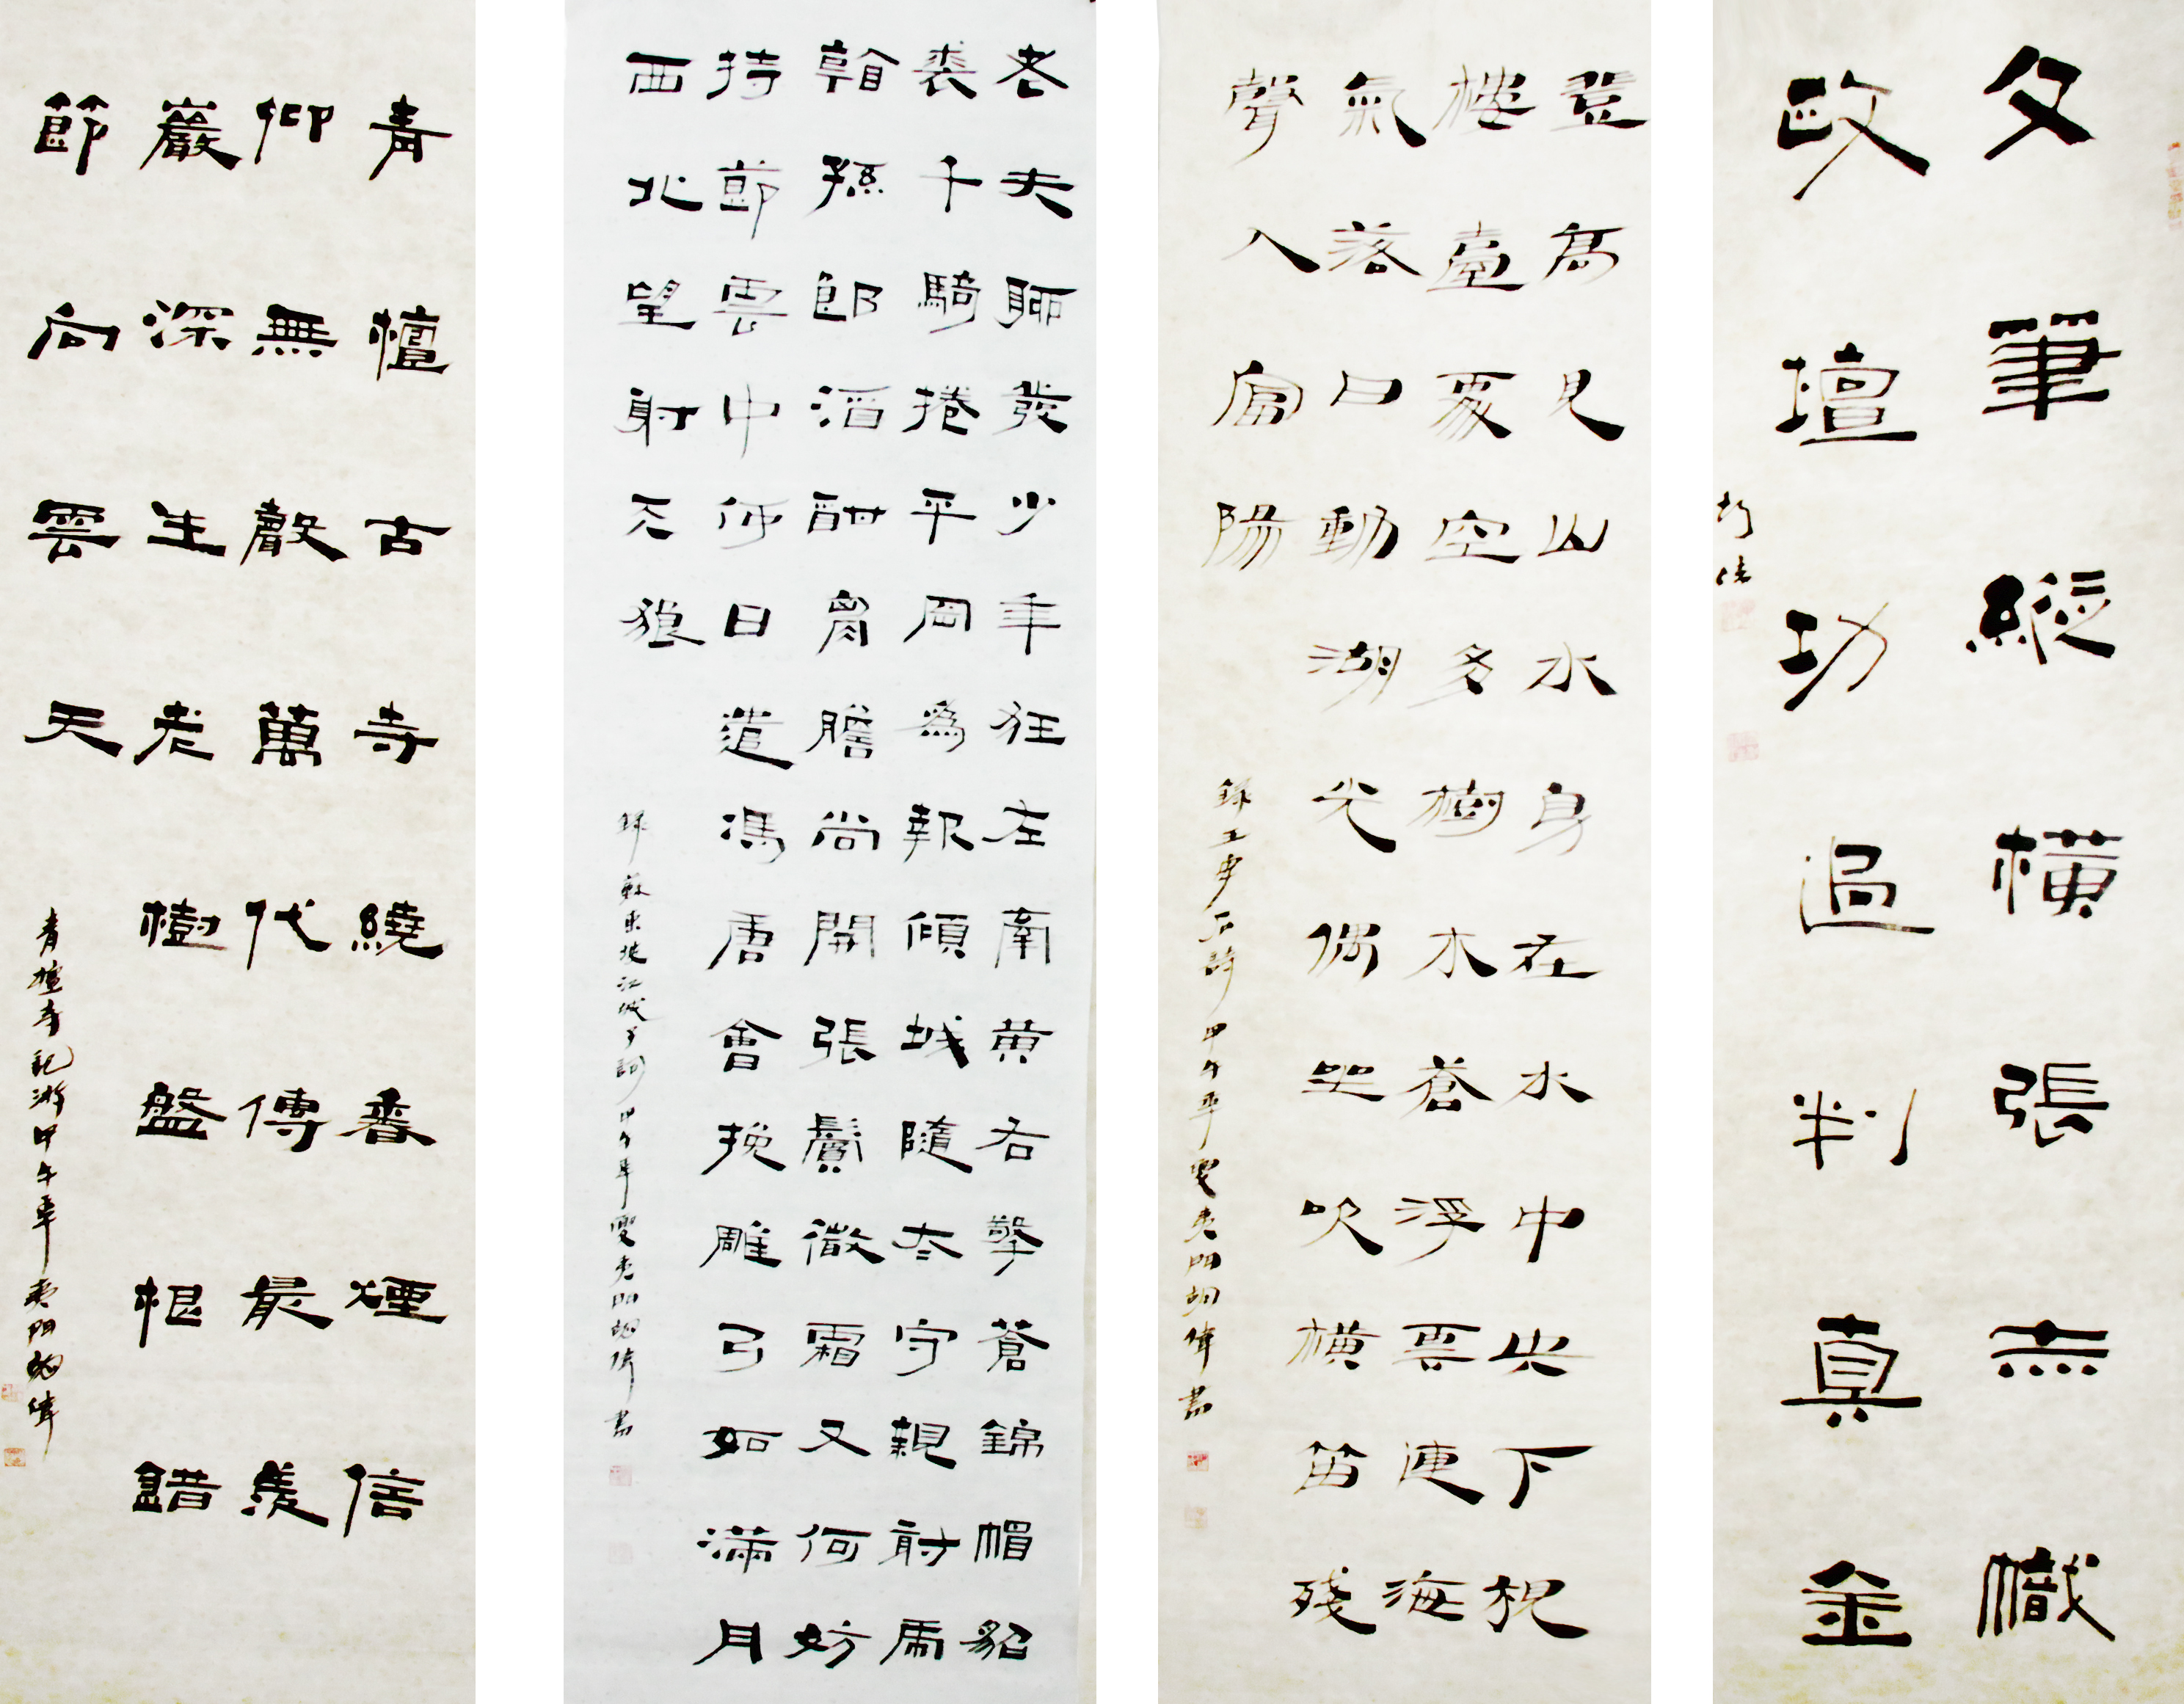 文筆縱橫張赤幟
政壇功過判真金
登高見山水身在水中央下視
樓臺處空多樹木蒼浮雲連海
氣落日動湖光偶坐吹橫笛殘
聲入富陽
錄王安石詩甲午年夏夷門胡偉書
老夫聊發少年狂左牽黃右擎蒼錦帽貂
裘千騎捲平岡為報傾城隨太守親射虎
看孫郎酒酣胸膽尚開張鬢微霜又何妨
持節雲中何日遣馮唐會挽雕弓如滿月
西北望射天狼
錄蘇東坡江城子詞甲午年夏夷門胡偉書
青檀古寺繞香煙信
仰無聲萬代傳最羨
巖深生老樹盤根錯
節向雲天
青檀寺記游甲午年夷門胡偉